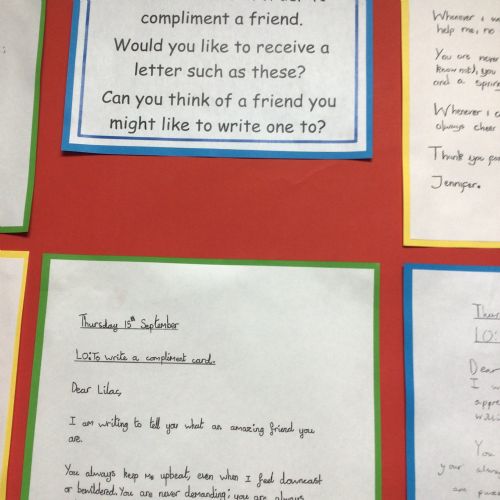 compliment a friend.
Would you like to receive a
letter such as these?
Can you think of a friend you
might like to write one to?
Whenever I
help me, no
You are never
know not), you
and a
Whenever I
always cheer
Thank you
Jennifer.
Thursday 15th September
LO: To write a compliment card.
Dear Lilac,
I am writing to tell you what an amazing friend you
are.
You always keep me upbeat, even when I feel downcast
or bewildered. You are never demanding; you are always
LO:
Dear
I
You
your